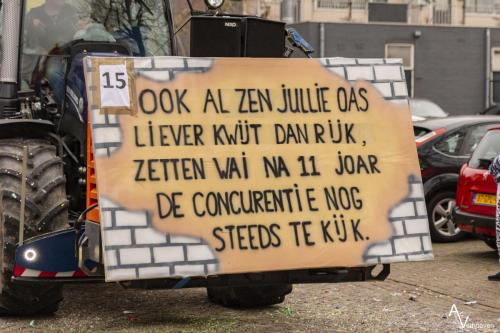 15
OOK AL ZEN JULLIE OAS
LIEVER KWIJT DAN RIJK,
ZETTEN WAI NA 11 JOAR
DE CONCURENTIE NOG
STEEDS TE KIJK.